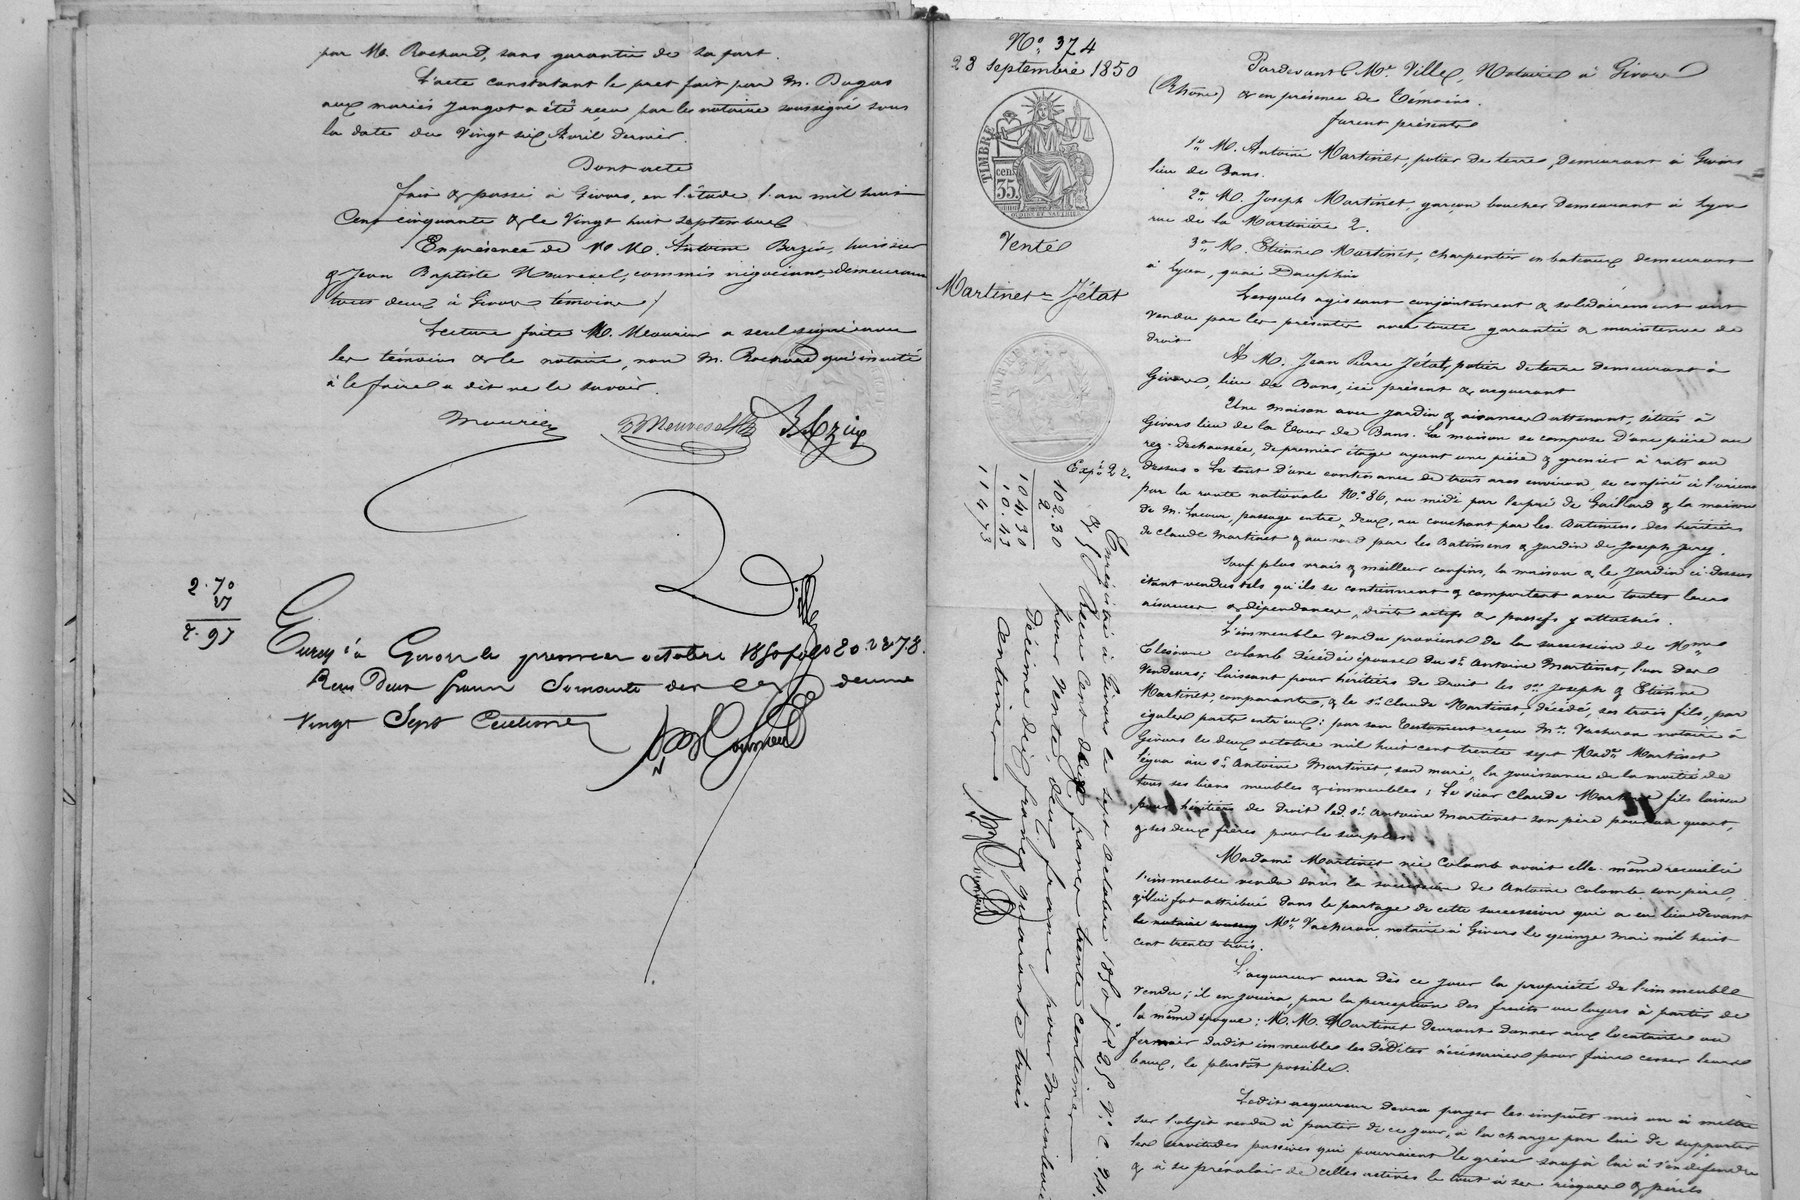 par M. Rochard, sans garantie de sa part.
L'acte constatant le prêt fait par M. Dugas
aux mariés Jangot a été reçu par le notaire soussigné sous
la date du vingt six Avril dernier.
Dont acte
fait & passé à Givors, en l'étude l'an mil huit
Cent cinquante & le vingt huit septembre
En présence de M. M. Antoine huissier
& Jean Baptiste commis négociant demeurant
tous deux à Givors témoins
Lecture faite M. Maurin a seul signé avec
les témoins & le notaire, non M. Rochard qui invité
à le faire a dit ne le savoir.
2.70
27
2.97
Enreg. à Givors le premier octobre 1850 folio 80
Reçu Deux francs Soixante dix
Vingt Sept Centimes
Nº 374
28 septembre 1850
TIMBRE
35
Vente
Martinet = Jétat
Exp.
102.30
2
104.30
10.43
114.73
Enregistré à Givors le sept octobre 1850 fº 25 Vº C. 2,4.
& Reçu Cent deux francs trente centimes
pour Vente, deux francs pour
Décime dix francs quarante trois
Centimes
Pardevant Me Ville, Notaire à Givors
(Rhône) & en présence de témoins.
furent présents
1º M. Antoine Martinet, potier de terre, demeurant à Givors
lieu de Bans.
2º M. Joseph Martinet, garçon boucher demeurant à Lyon
rue de la Martinière 2.
3º M. Etienne Martinet, charpentier en bateaux demeurant
à Lyon, quai Dauphin
Lesquels agissant conjointement & solidairement ont
vendu par les présentes avec toute garantie & maintenue de
droit
A M. Jean Pierre Jétat, potier de terre demeurant à
Givors, lieu de Bans, ici présent & acquérant
Une maison avec jardin & aisances attenant, situés à
Givors lieu de la Tour de Bans. La maison se compose d'une pièce au
rez-dechaussée, de premier étage ayant une pièce & grenier à toits au
dessus. Le tout d'une contenance de trois ares environ, se confine à l'orient
par la route nationale Nº 86, au midi par le pré de Gaillard & la maison
de M. passage entre deux, au couchant par les Batimens des héritiers
de Claude Martinet & au nord par les Batimens & jardin de Joseph
Sauf plus vrais & meilleurs confins, la maison & le jardin ci-dessus
étant vendus tels qu'ils se contiennent & comportent avec toutes leurs
aisances & dépendances, droits actifs & passifs y attachés.
L'immeuble vendu provient de la succession de Mme
Eléonore Colomb décédée épouse du sr Antoine Martinet, l'un des
vendeurs; laissant pour héritiers de droit les srs Joseph & Etienne
Martinet, comparants, & le sr Claude Martinet, décédé, ses trois fils, par
égales parts entr'eux: par son testament reçu Me Vacheron notaire à
Givors le deux octobre mil huit cent trente sept Made Martinet
légua au sr Antoine Martinet, son mari, la jouissance de la moitié de
tous ses biens meubles & immeubles; Le sieur Claude Martinet fils laissa
pour héritiers de droit led. sr Antoine Martinet son père pour un quart,
& ses deux frères pour le surplus.
Madame Martinet née Colomb avait elle-même recueilli
l'immeuble vendu dans la succession de Antoine Colomb son père,
qui lui fut attribué dans le partage de cette succession qui a eu lieu devant
le notaire Me Vacheron notaire à Givors le quinze mai mil huit
cent trente trois.
L'acquéreur aura dès ce jour la propriété de l'immeuble
vendu; il en jouira, par la perception des fruits ou loyers à partir de
la même époque; M. M. Martinet devront donner aux locataires ou
fermier dudit immeuble les dédites nécessaires pour faire cesser leurs
baux, le plustôt possible.
Ledit acquéreur devra payer les impôts mis ou à mettre
sur l'objet vendu à partir de ce jour, à la charge par lui de supporter
les servitudes passives qui pourraient le grever sauf à lui à s'en défendre
& à se prévaloir de celles actives le tout à ses risques & périls